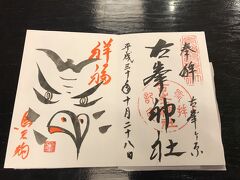 奉拝
古峯ヶ原
古峯神社
平成三十年十月二十八日
祥福